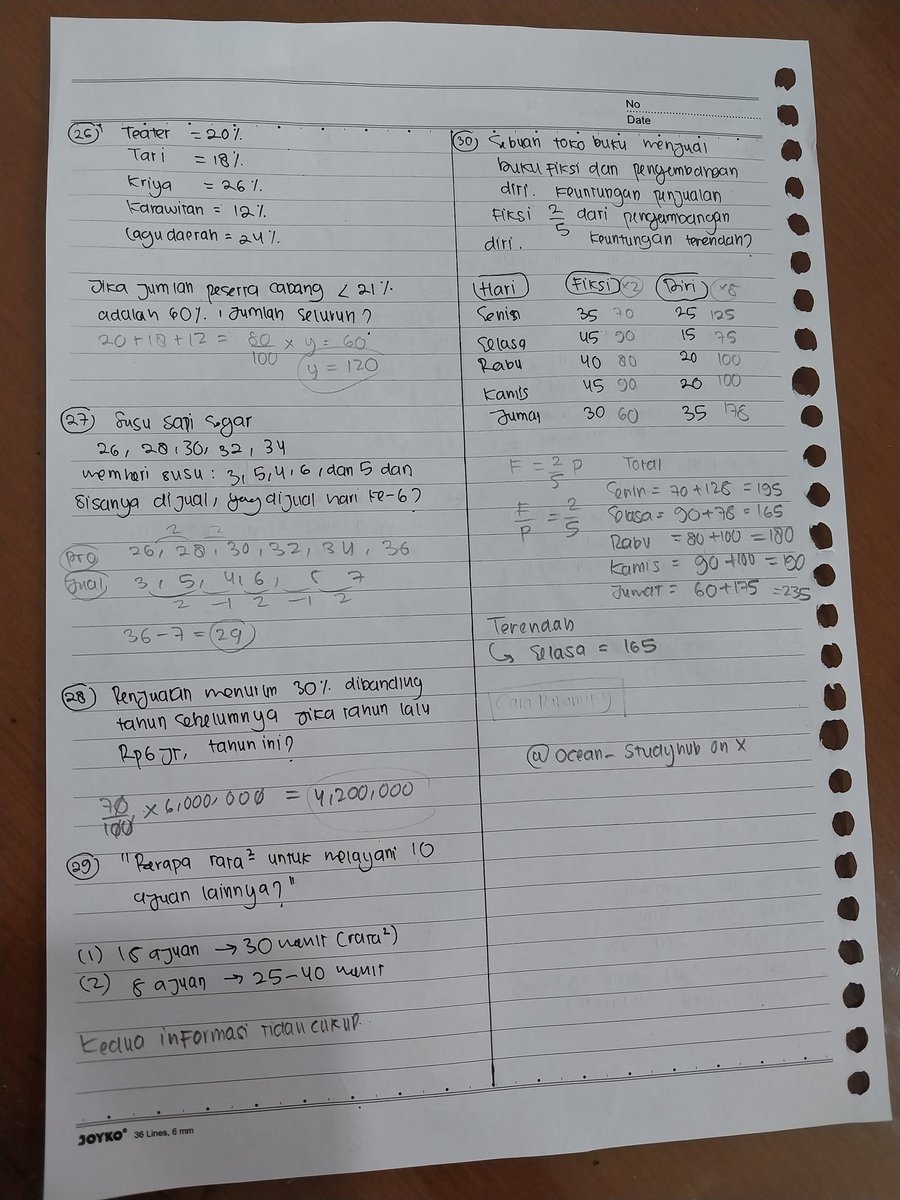 No
Date
(26) Teater = 20%
Tari = 18%
Kriya = 26%
Karawitan = 12%
Lagu daerah = 24%
Jika jumlah peserta cabang < 21%
adalah 60%, jumlah seluruh?
20+18+12 = 50/100 × y = 60
y = 120
(27) Susu sapi segar
26, 28, 30, 32, 34
memberi susu : 3, 5, 4, 6, dan 5 dan
sisanya dijual, yang dijual hari ke-6?
2 2
Pro 26, 28, 30, 32, 34, 36
Jual 3, 5, 4, 6, 5 7
2 -1 2 -1 2
36 - 7 = 29
(28) Penjualan menurun 30% dibanding
tahun sebelumnya jika tahun lalu
Rp6 jt, tahun ini?
70/100 × 6,000,000 = 4,200,000
(29) "Berapa rara² untuk melayani 10
ajuan lainnya?"
(1) 15 ajuan → 30 menit (rara²)
(2) 8 ajuan → 25-40 menit
Kedua informasi tidak cukup.
JOYKO® 36 Lines, 6 mm
(30) Sebuah toko buku menjual
buku fiksi dan pengembangan
diri. Keuntungan penjualan
Fiksi 2/5 dari pengembangan
diri. Keuntungan terendah?
Hari Fiksi ×2 Diri ×5
Senin 35 70 25 125
Selasa 45 90 15 75
Rabu 40 80 20 100
Kamis 45 90 20 100
Jumat 30 60 35 175
F = 2/5 P Total
Senin = 70+125 = 195
F/P = 2/5 Selasa = 90+75 = 165
Rabu = 80+100 = 180
Kamis = 90+100 = 190
Jumat = 60+175 = 235
Terendah
↳ Selasa = 165
@ocean_studyhub on X